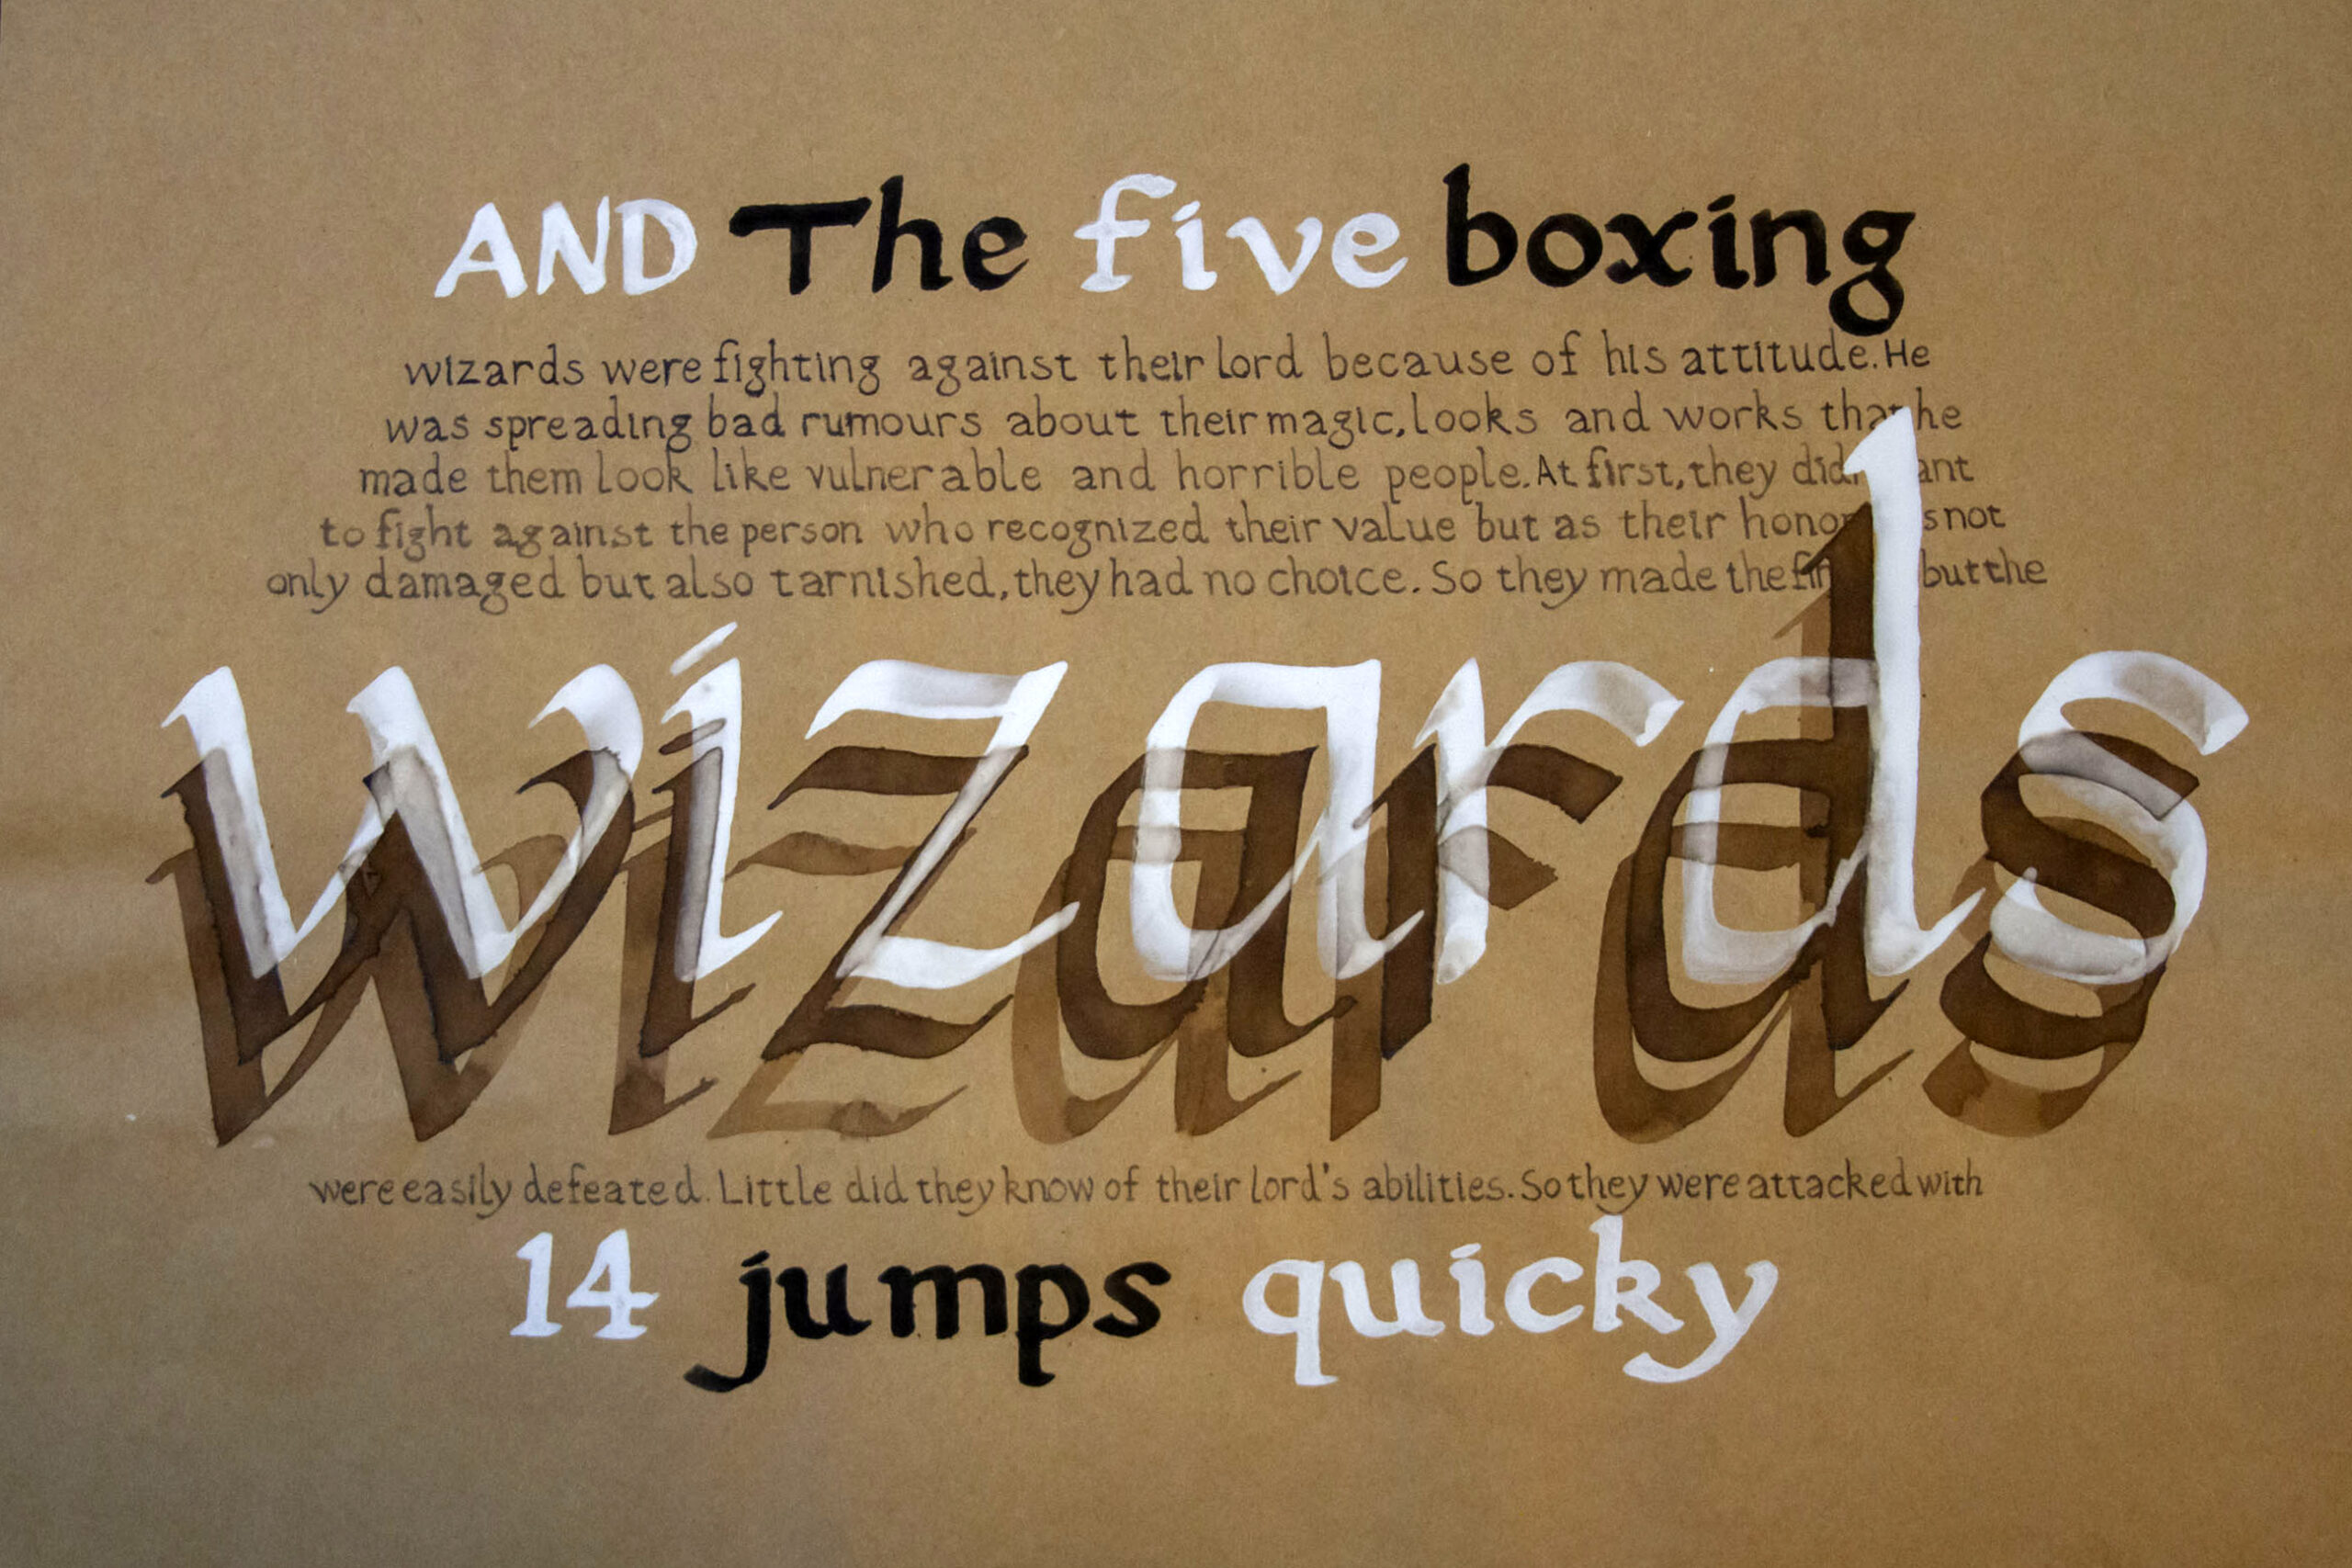 AND The five boxing
wizards were fighting against their lord because of his attitude. He
was spreading bad rumours about their magic, looks and works that he
made them look like vulnerable and horrible people. At first, they
to fight against the person who recognized their value but as their not
only damaged but also tarnished, they had no choice. So they made the but the
wizards
were easily defeated. Little did they know of their lord's abilities. So they were attacked with
14 jumps quicky